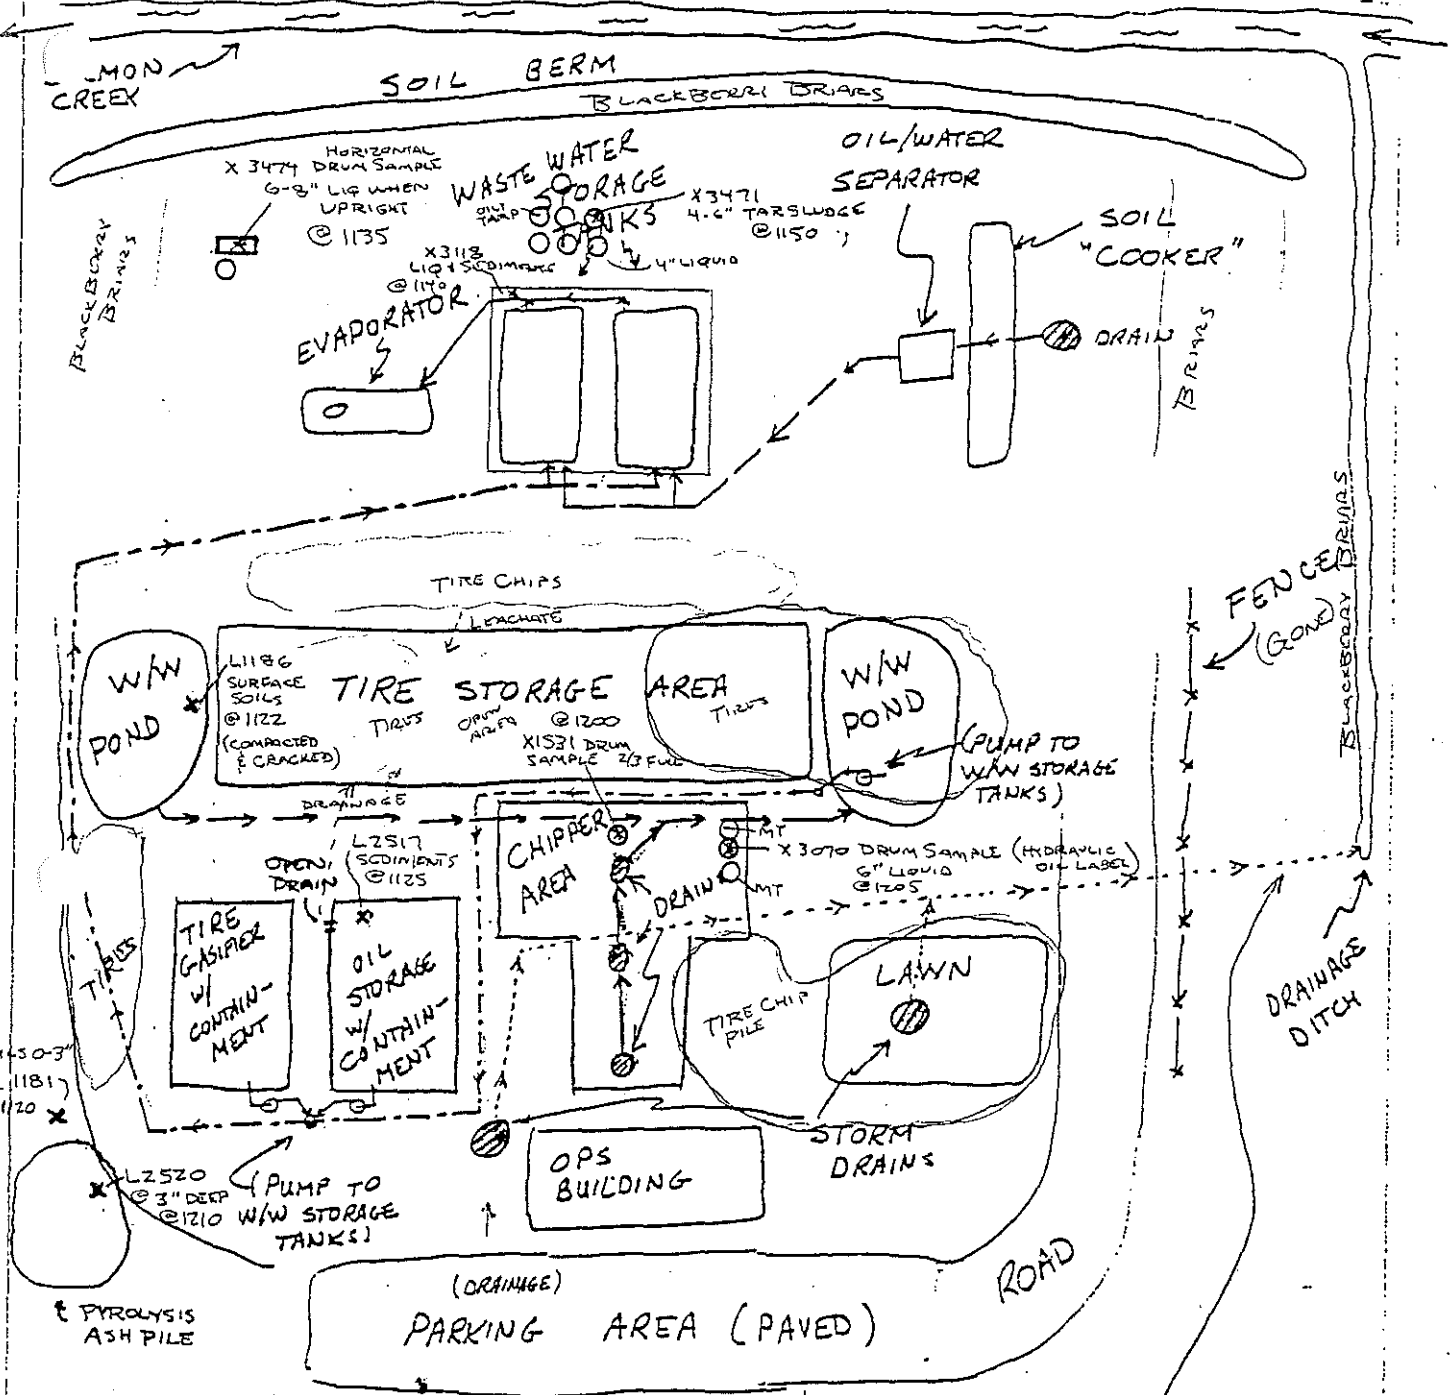 MON
CREEK
SOIL BERM
BLACKBERRI BRIARS
HORIZONTAL
X 3474 DRUM SAMPLE
6-8" LIQ WHEN
UPRIGHT
@ 1135
WASTE WATER
STORAGE
TANKS
X3471
4-6" TAR SLUDGE
@1150
4" LIQUID
X3118
LIQ & SEDIMENTS
@ 1140
OIL/WATER
SEPARATOR
SOIL
"COOKER"
BLACKBERRY
BRIARS
EVAPORATOR
DRAIN
BRIARS
TIRE CHIPS
LEACHATE
FENCE
(GONE)
BLACKBERRY BRIARS
W/W
POND
L1186
SURFACE
SOILS
@ 1122
(COMPACTED
& CRACKED)
TIRE STORAGE AREA
TIRES
OPEN
AREA
@1200
X1531 DRUM
SAMPLE 2/3 FULL
TIRES
W/W
POND
(PUMP TO
W/W STORAGE
TANKS)
DRAINAGE
OPEN
DRAIN
L2517
SEDIMENTS
@1125
CHIPPER
AREA
DRAIN
MT
X 3070 DRUM SAMPLE (HYDRAULIC
OIL LABEL)
6" LIQUID
@1205
MT
TIRES
TIRE
GASIFIER
W/
CONTAIN-
MENT
OIL
STORAGE
W/
CONTAIN-
MENT
TIRE CHIP
PILE
LAWN
DRAINAGE
DITCH
0-3"
1181
1120
L2520
@ 3" DEEP
@1210
(PUMP TO
W/W STORAGE
TANKS)
OPS
BUILDING
STORM
DRAINS
PYROLYSIS
ASH PILE
(DRAINAGE)
PARKING AREA (PAVED)
ROAD